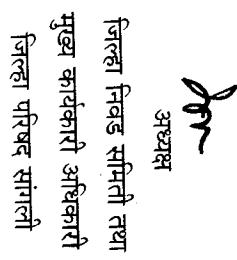 अध्यक्ष
जिल्हा निवड समिती तथा
मुख्य कार्यकारी अधिकारी
जिल्हा परिषद सांगली